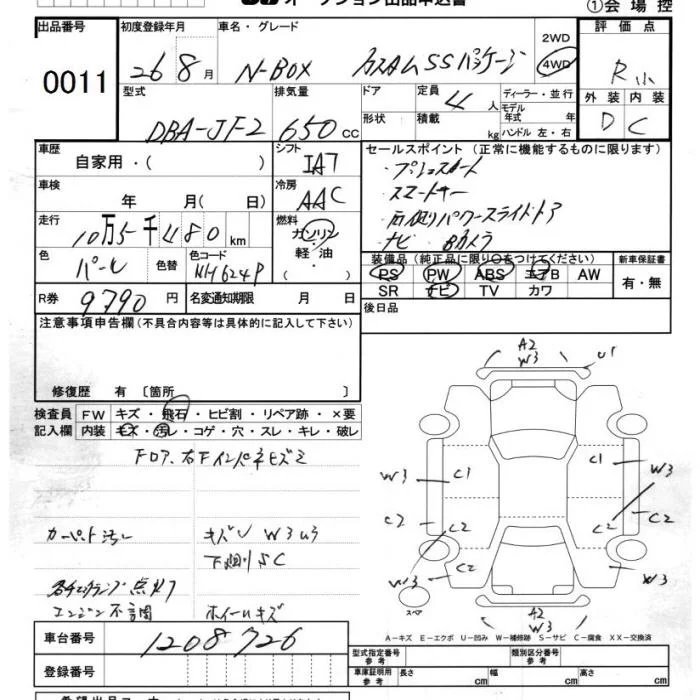 オークション出品申込書
①会場控
出品番号 初度登録年月 車名・グレード 評価点
0011
26年8月 N-BOX カスタムSSパッケージ 2WD 4WD R小
型式 排気量 ドア 定員 ディーラー・並行 外装 内装
DBA-JF2 650cc 形状 積載 4人 kg モデル年式 年 ハンドル 左・右 D C
車歴 自家用・( ) シフト IAT セールスポイント(正常に機能するものに限ります)
・プッシュスタート
車検 年 月( 日) 冷房 AAC ・スマートキー
走行 10万5千480km 燃料 ガソリン・軽油・( ) ・左側パワースライドドア
・ナビ Bカメラ
色 パール 色替 色コード NH624P 装備品(純正品に限り○をつけてください) 新車保証書
PS PW ABS エアB AW 有・無
SR ナビ TV カワ
R券 9790円 名変通知期限 月 日 後日品
注意事項申告欄(不具合内容等は具体的に記入して下さい)
修復歴 有〔箇所 〕
検査員 FW キズ・飛石・ヒビ割・リペア跡・×要
記入欄 内装 キズ・汚レ・コゲ・穴・スレ・キレ・破レ
フロア、右Fインパネキズミ
カーペット汚レ キズU W3U3
下廻りSC
各チェックランプ点灯
エンジン不調 ホイールキズ
A2
W3
U1
C1
C1
W3
W3
C2
C2
C2
C2
W3
C2
W3
A2
W3
スペア
A-キズ E-エクボ U-凹み W-補修跡 S-サビ C-腐食 XX-交換済
車台番号 1208726
型式指定番号 参考 類別区分番号 参考
登録番号 車庫証明用 参考 長さ cm 幅 cm 高さ cm